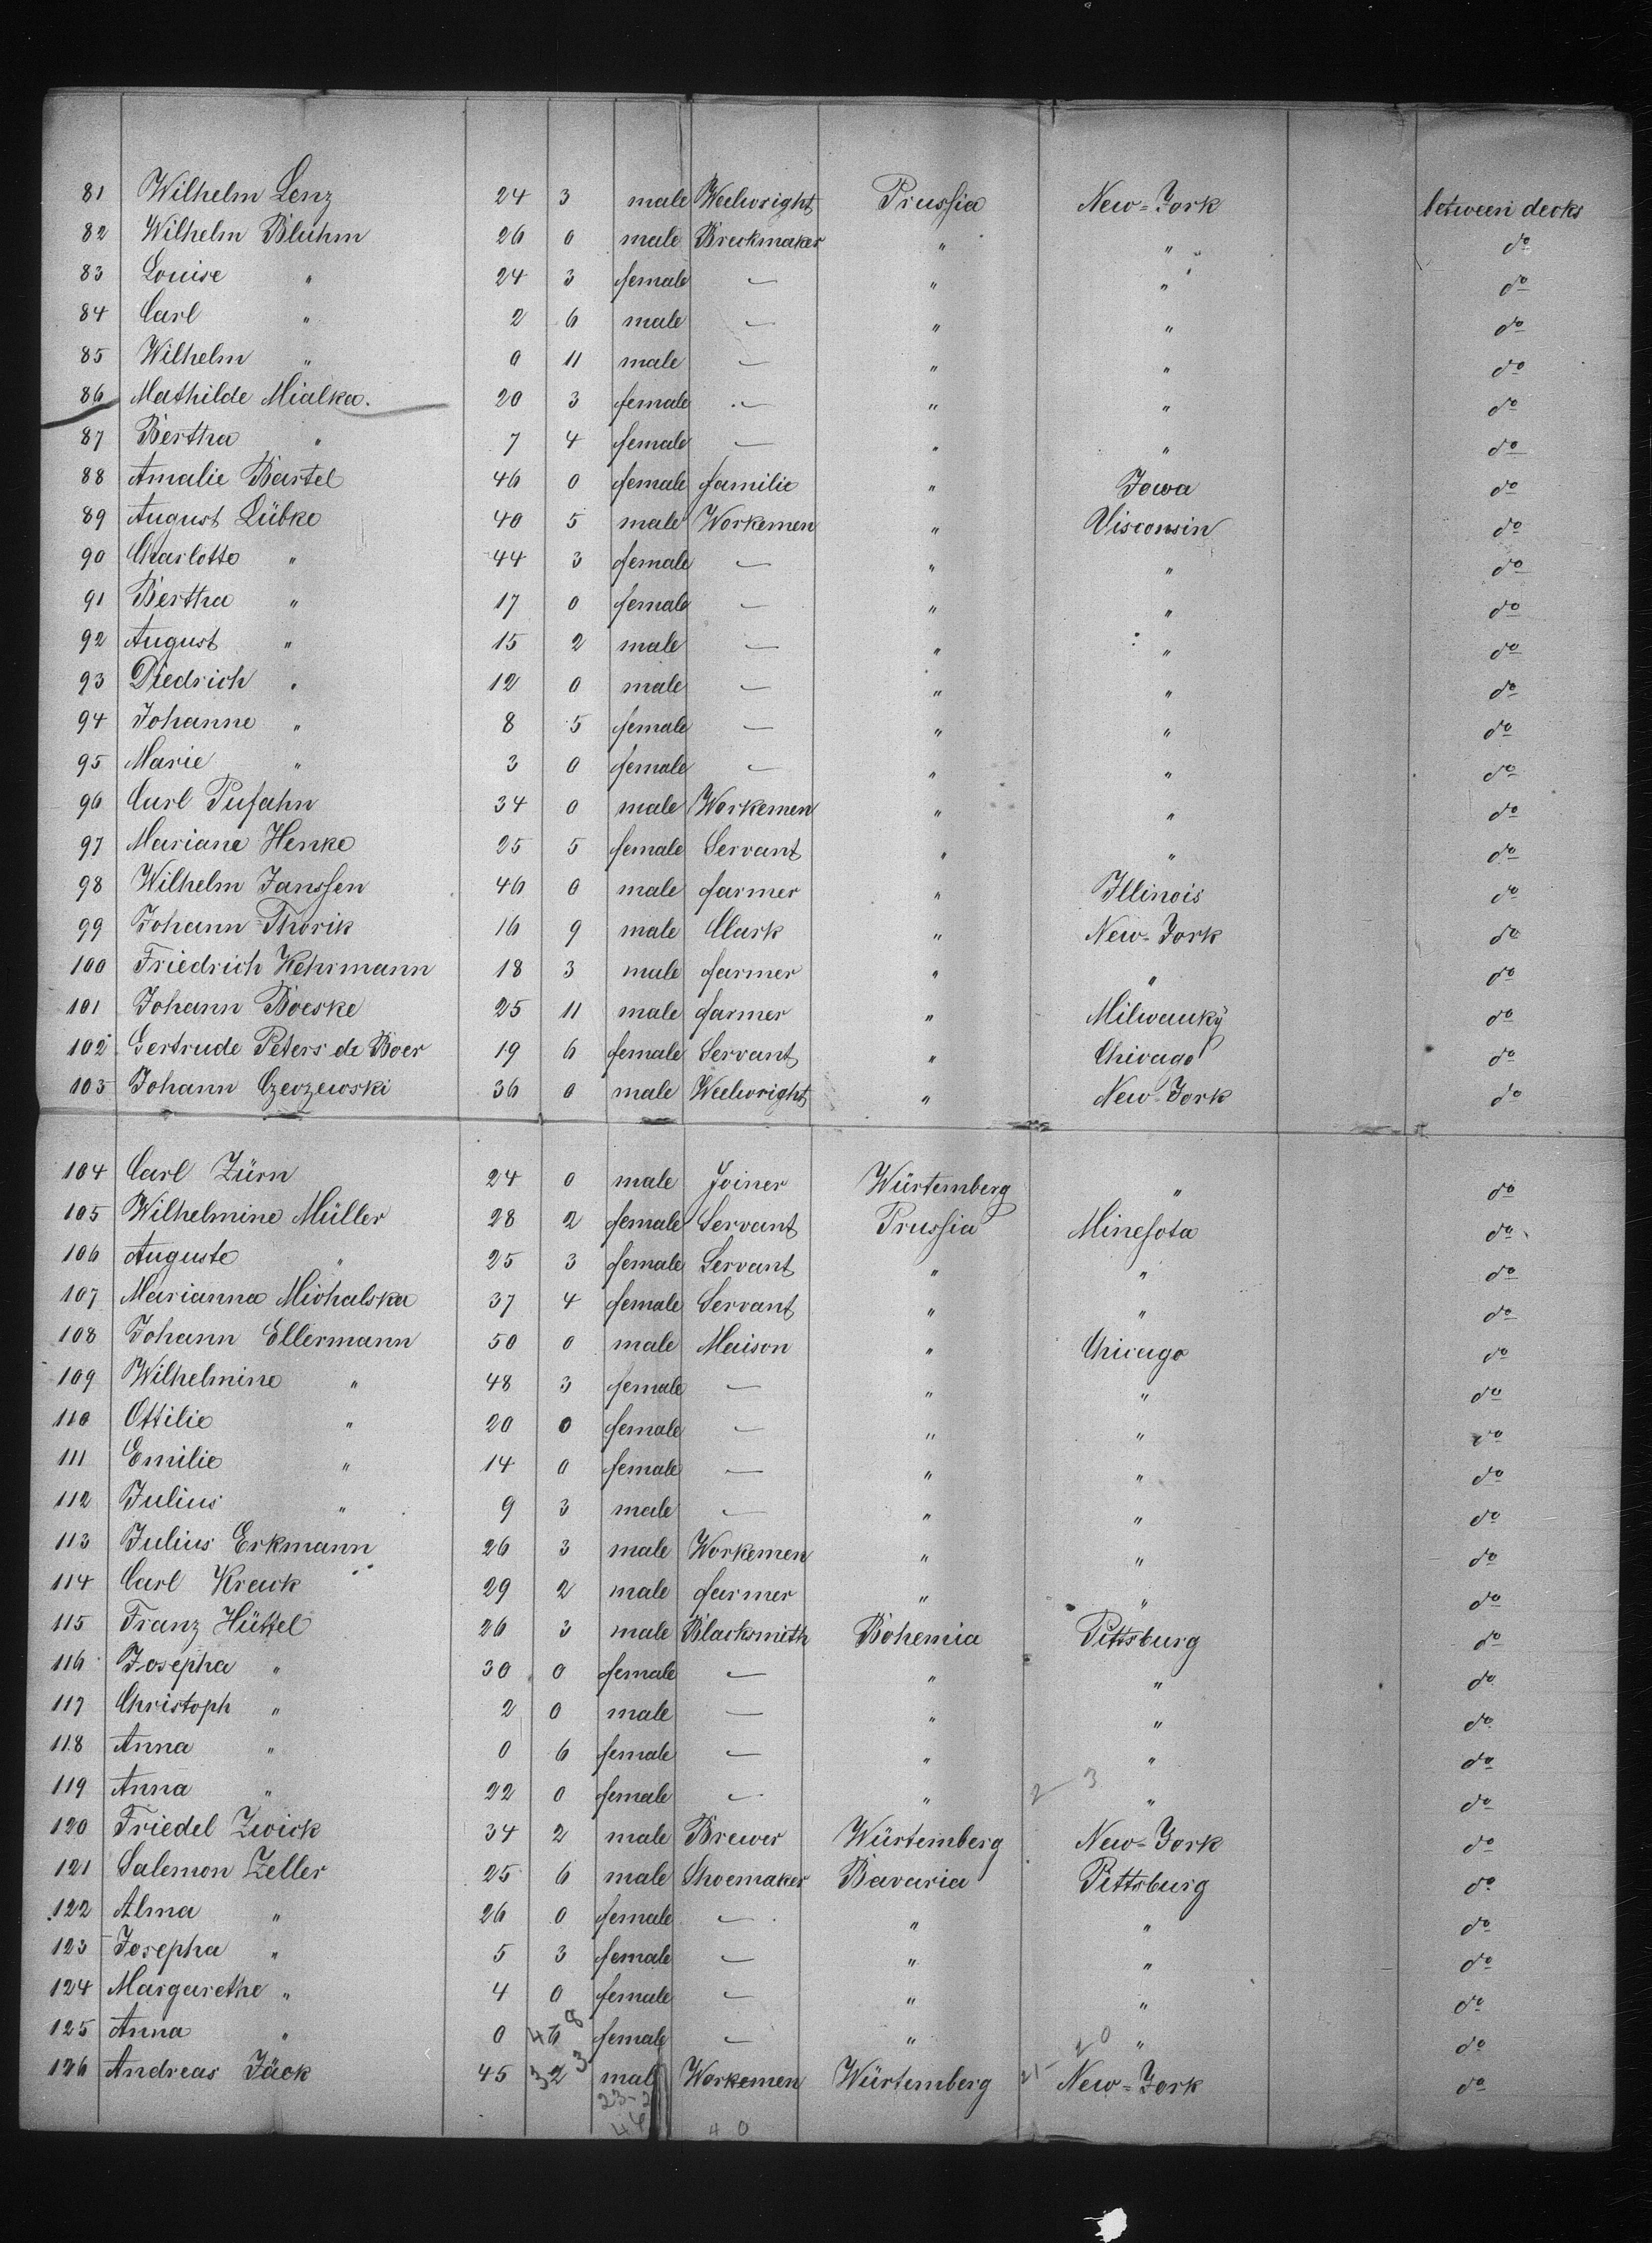 81 Wilhelm Lenz 24 3 male Weelwright Prussia New-York between decks
82 Wilhelm Bluhm 26 0 male Breckmaker " " do
83 Louise " 24 3 female — " " do
84 Carl " 2 6 male — " " do
85 Wilhelm " 0 11 male — " " do
86 Mathilde Mialka. 20 3 female — " " do
87 Bertha " 7 4 female — " " do
88 Amalie Bartel 46 0 female familie " Iowa do
89 August Lübke 40 5 male Workemen " Visconsin do
90 Charlotte " 44 3 female — " " do
91 Bertha " 17 0 female — " " do
92 August " 15 2 male — " " do
93 Diedrich " 12 0 male — " " do
94 Johanne " 8 5 female — " " do
95 Marie " 3 0 female — " " do
96 Carl Pufahn 34 0 male Workemen " " do
97 Mariane Henke 25 5 female Servant " " do
98 Wilhelm Janssen 46 0 male farmer " Illinois do
99 Johann Thorik 16 9 male Clark " New-York do
100 Friedrich Kehrmann 18 3 male farmer " " do
101 Johann Boeske 25 11 male farmer " Milwauky do
102 Gertrude Peters de Boer 19 6 female Servant " Chicago do
103 Johann Czevzewski 36 0 male Weelwright " New-York do
104 Carl Zürn 24 0 male Joiner Würtemberg " do
105 Wilhelmine Müller 28 2 female Servant Prussia Minesota do
106 Auguste " 25 3 female Servant " " do
107 Marianna Michalska 37 4 female Servant " " do
108 Johann Ellermann 50 0 male Maison " Chicago do
109 Wilhelmine " 48 3 female — " " do
110 Ottilie " 20 0 female — " " do
111 Emilie " 14 0 female — " " do
112 Julius " 9 3 male — " " do
113 Julius Erkmann 26 3 male Workemen " " do
114 Carl Krawk 29 2 male farmer " " do
115 Franz Hüttel 26 3 male Blacksmith Bohemia Pittsburg do
116 Josepha " 30 0 female — " " do
117 Christoph " 2 0 male — " " do
118 Anna " 0 6 female — " " do
119 Anna " 22 0 female — " 2 3 " do
120 Friedel Zwick 34 2 male Brewer Würtemberg New-York do
121 Salemon Zeller 25 6 male Shoemaker Bavaria Pittsburg do
122 Alma " 26 0 female — " " do
123 Josepha " 5 3 female — " " do
124 Margarethe " 4 0 female — " " do
125 Anna " 0 6 female — " " do
126 Andreas Jäck 45 2 male Workemen Würtemberg New-York do